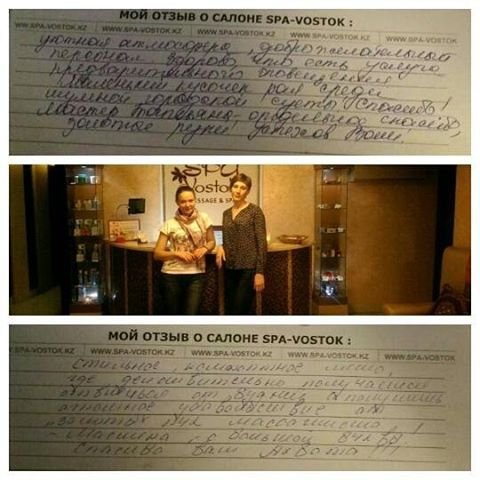 МОЙ ОТЗЫВ О САЛОНЕ SPA-VOSTOK :
WWW.SPA-VOSTOK.KZ WWW.SPA-VOSTOK.KZ WWW.SPA-VOSTOK.KZ WWW.SPA-VOSTOK.KZ
уютная атмосфера, доброжелательный
персонал. Здорово что есть услуга
предварительного
Маленький кусочек рая среди
шумной городской суеты. Спасибо!
Мастер отдельное спасибо,
золотые руки! Успехов Вам.
SPA
Vostok
MASSAGE & SPA
МОЙ ОТЗЫВ О САЛОНЕ SPA-VOSTOK :
WWW.SPA-VOSTOK.KZ WWW.SPA-VOSTOK.KZ WWW.SPA-VOSTOK.KZ WWW.SPA-VOSTOK.KZ
Стильное, компактное место,
где действительно получаешь
от и получишь
удовольствие от
"золотых" рук массажиста!
с большой
Спасибо Вам !!!